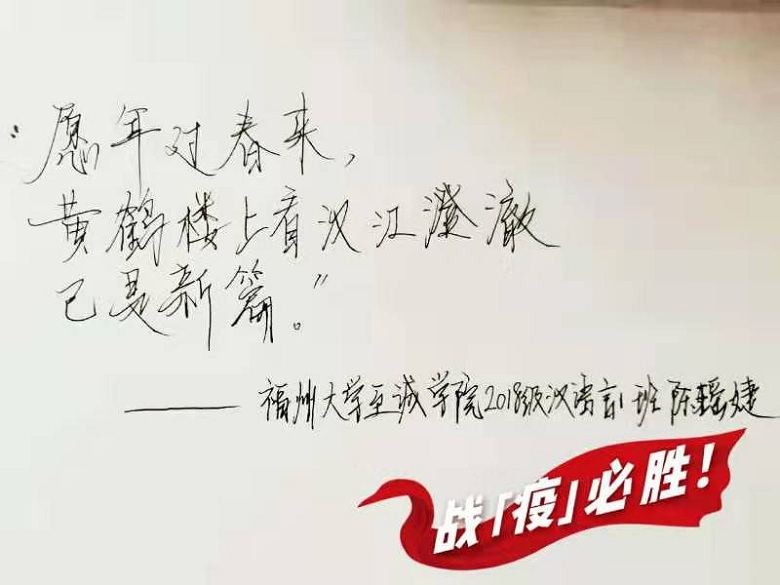 “愿年对春来，
黄鹤楼上看汉江澄澈
已是新篇。”
——福州大学至诚学院2018级汉语言1班 陈瑶婕
战「疫」必胜！